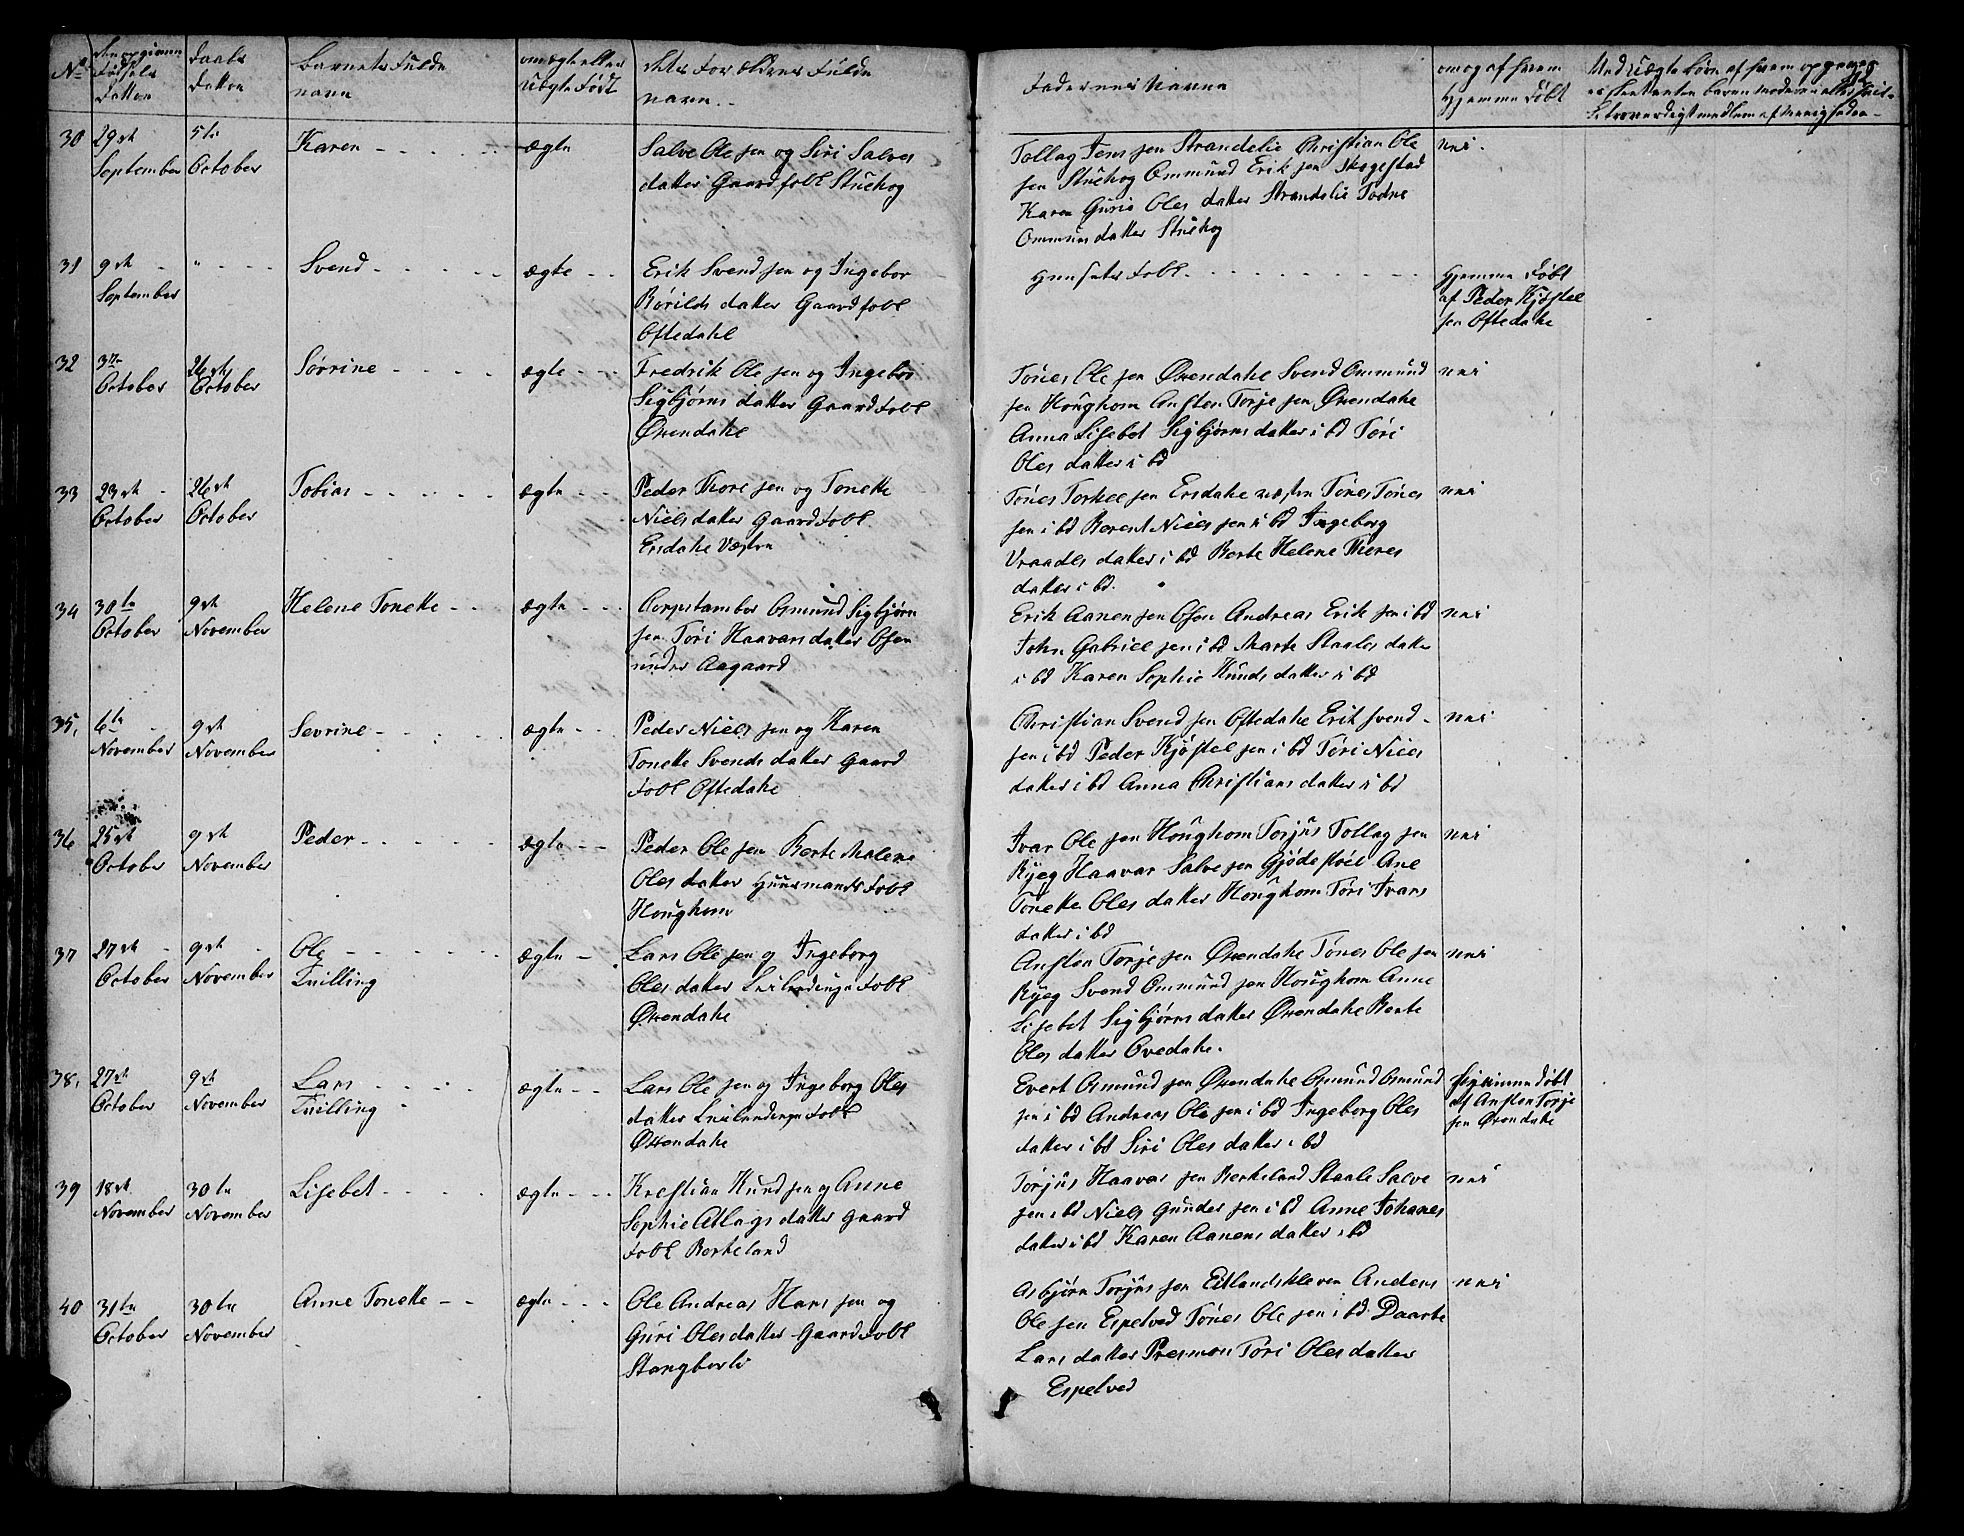 No
Fødsels
Datten
Daabs
Datten
Barnets Fulde
navn
om ægte eller
uægte Født
dets Forældres Fulde
navn
Fadernes Navne
om og af hvem
Hjemme Døbt
30
29de
September
5te
October
Karen
ægte
Salve Ole sen og Siri Salves
datter Gaardfolk Stuehog
Tollag Jens sen Strandelie Christian Ole
sen Stuehog Ommund Erik sen Skogestad
Karen Gurie Oles datter Strandelie Todne
Ommuns datter Stuehog
nei
31
9de
September
Svend
ægte
Erik Svend sen og Ingebor
Børilds datter Gaardfolk
Oftedahl
Folk
Hjemme Døbt
af Peder Kjøstel
sen Oftedahl
32
3te
October
26de
October
Sørrine
ægte
Fredrik Ole sen og Ingebor
Sigbjørns datter Gaardfolk
Øxendahl
Tønes Ole sen Øxendahl Svend Ommund
sen Houghom Ansten Torje sen Øxendahl
Anna Lisebet Sigbjørns datter i bd Tøri
Oles datter i bd
nei
33
23de
October
26de
October
Tobias
ægte
Peder Thore sen og Tonette
Niels datter Gaardfolk
Ersdahl Vestre
Tønes Torkel sen Ersdahl vestre Tønes Tønes
sen i bd Berent Niels sen i bd Ingeborg
Vraades datter i bd Berte Helene Thores
datter i bd
nei
34
30te
October
9de
November
Helene Tonette
ægte
Asmund Sigbjørn
sen Tøri Haavars datter Osen
under Aagaard
Erik Aanensen Osen Andreas Erik sen i bd
John Gabriel sen i bd Marte Staales datter
i bd Karen Sophie Knuds datter i bd
nei
35
6te
November
9de
November
Sevrine
ægte
Peder Niels sen og Karen
Tonette Svends datter Gaard
Folk Oftedahl
Christian Svend sen Oftedahl Erik Svend
sen i bd Peder Kjøstel sen i bd Tøri Niels
datter i bd Anna Christians datter i bd
nei
36
25de
October
9de
November
Peder
ægte
Peder Ole sen Berte Malene
Oles datter Huusmands Folk
Houghom
Ivar Ole sen Houghom Torjus Tollag sen
Ryeg Haavar Salve sen Gjødestøil Ane
Tonette Oles datter Houghom Tøri Ivars
datter i bd
nei
37
27de
October
9de
November
Ole
Tvilling
ægte
Lars Ole sen og Ingeborg
Oles datter Leilendinge Folk
Øxendahl
Ansten Torje sen Øxendahl Tønes Ole sen
Ryeg Svend Ommund sen Houghom Anne
Lisebet Sigbjørns datter Øxendahl Berte
Oles datter Ovedahl
nei
38
27de
October
9de
November
Lars
Tvilling
ægte
Lars Ole sen og Ingeborg Oles
datter Leilendinge Folk
Øxendahl
Evert Asmund sen Øxendahl Asmund Asmund
sen i bd Andreas Ole sen i bd Ingeborg Oles
datter i bd Siri Oles datter i bd
Hjemme Døbt
af Ansten Torje
sen Øxendahl
39
18de
November
30te
November
Lisebet
ægte
Krestian Knud sen og Anne
Sophie Atlags datter Gaard
Folk Berkeland
Torjus Haavar sen Berkeland Staale Salve
sen i bd Niels Gunder sen i bd Anne Johanes
datter i bd Karen Aanens datter i bd
nei
40
31te
October
30te
November
Anne Tonette
ægte
Ole Andreas Hans sen og
Guri Oles datter Gaard Folk
Stangborli
Asbjørn Torjus sen Eitlandskleven Anders
Ole sen Espetved Tønes Ole sen i bd Daarte
Lars datter Presmon Tøri Oles datter
Espetved
nei